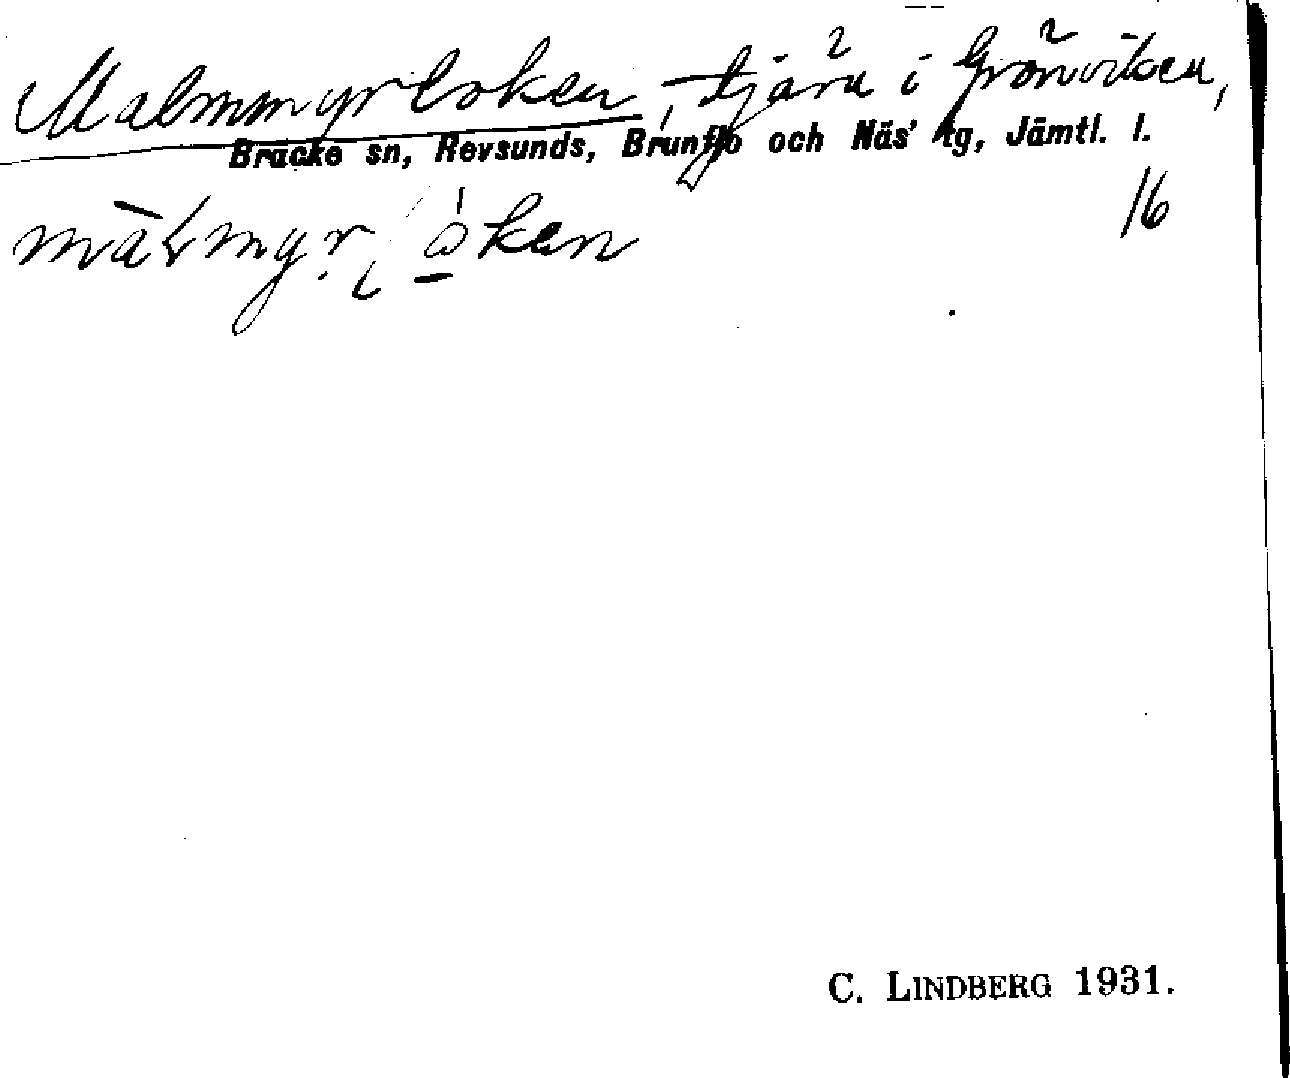 Malmmyrloken, tjärn i Grönviken,
Bräcke sn, Revsunds, Brunflo och Näs' tg, Jämtl. l.
16
C. LINDBERG 1931.